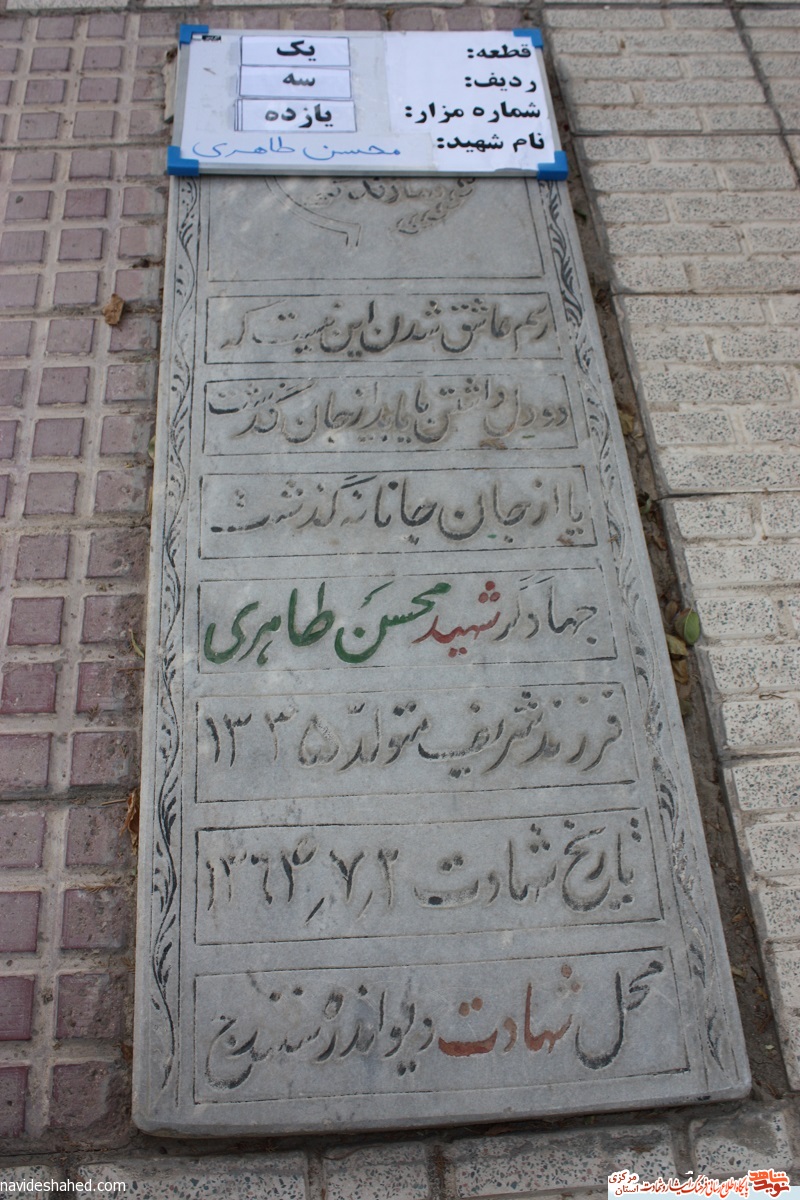 قطعه: یک
ردیف: سه
شماره مزار: یازده
نام شهید: محسن طاهری
رسم عاشق شدن این نیست که
دو دل داشتن ها یا باید از جان گذشت
یا از جان جانانه گذشت
جهادگر شهید محسن طاهری
فرزند شریف متولد ۱۳۳۵
تاریخ شهادت ۱۳۶۴٫۷٫۲
محل شهادت دیواندره سنندج
navideshahed.com
نوید شاهد
استان مرکزی